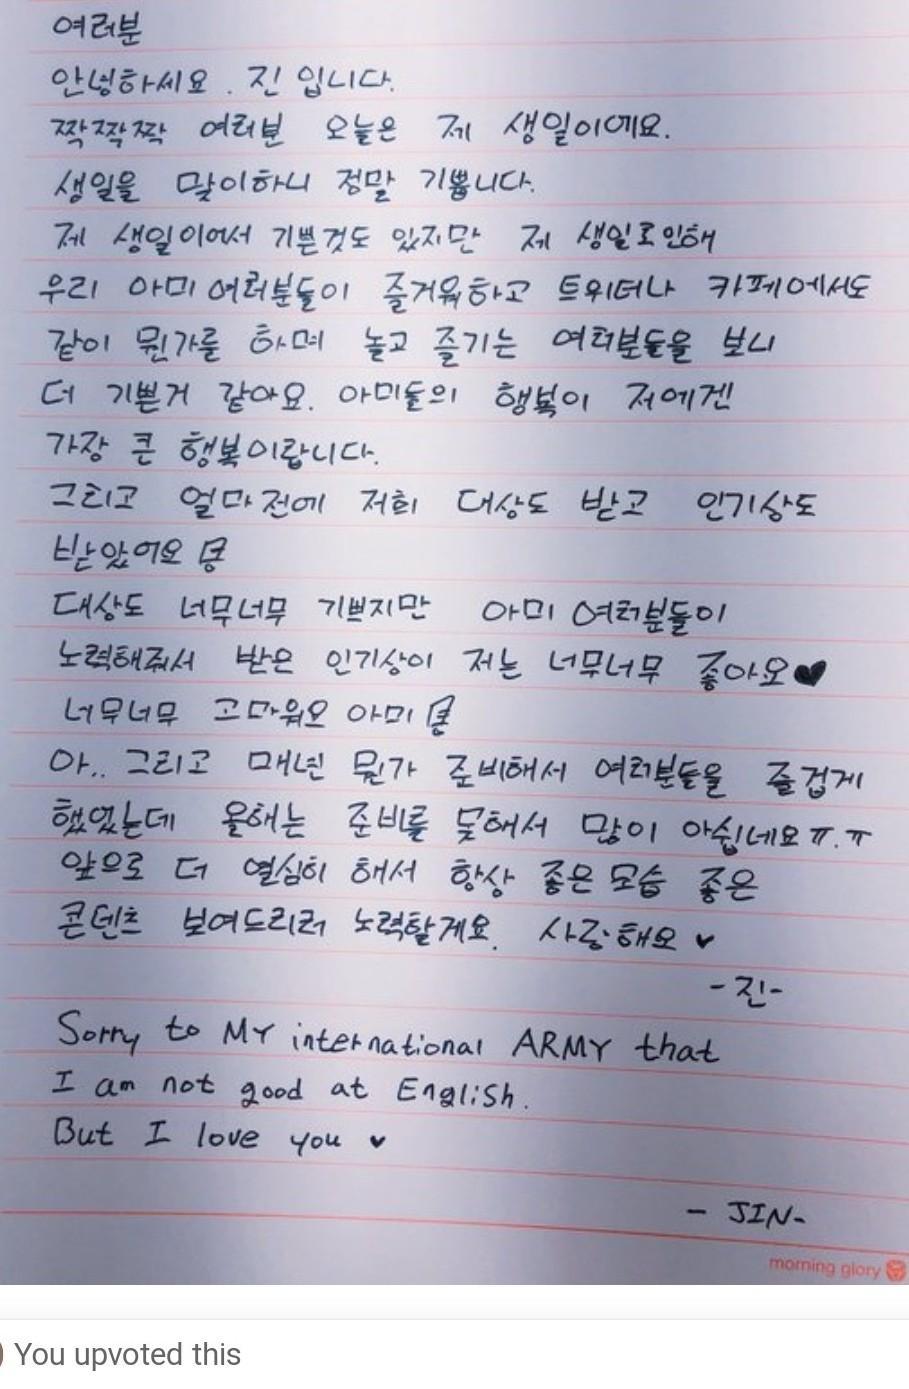 여러분
안녕하세요. 진 입니다.
짝짝짝 여러분 오늘은 제 생일이에요.
생일을 맞이하니 정말 기쁩니다.
제 생일이어서 기쁜것도 있지만 제 생일로인해
우리 아미여러분들이 즐거워하고 트위터나 카페에서도
같이 뭔가를 하며 놀고 즐기는 여러분들을 보니
더 기쁜거 같아요. 아미들의 행복이 저에겐
가장 큰 행복이랍니다.
그리고 얼마전에 저희 대상도 받고 인기상도
받았어요
대상도 너무너무 기쁘지만 아미 여러분들이
노력해줘서 받은 인기상이 저는 너무너무 좋아요♥
너무너무 고마워요 아미
아.. 그리고 매년 뭔가 준비해서 여러분들을 즐겁게
했었는데 올해는 준비를 못해서 많이 아쉽네요 ㅠ.ㅠ
앞으로 더 열심히 해서 항상 좋은 모습 좋은
콘텐츠 보여드리러 노력할게요. 사랑해요 ♥
-진-
Sorry to MY international ARMY that
I am not good at English.
But I love you ♥
- JIN-
morning glory
You upvoted this